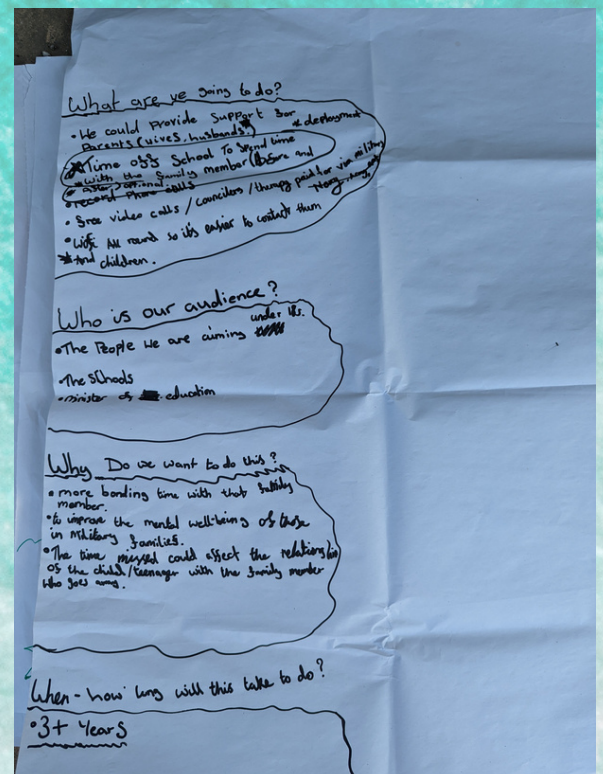 What are we going to do?
• We could provide support for
Parents (wives, husbands*) * deployment
*Time off School To Spend time
with the family member (before and
after) optional
• record phone calls
• free video calls / councilors / therapy paid for via military
• wifi All round so it's easier to contact them
*And children.
Who is our audience?
• The People we are aiming under 18s.
• The Schools
• minister of education
Why Do we want to do this?
• more bonding time with that family
member.
• to improve the mental well-being of those
in Military families.
• The time missed could affect the relationship
of the child/teenager with the family member
who goes away.
When - how long will this take to do?
• 3+ Years